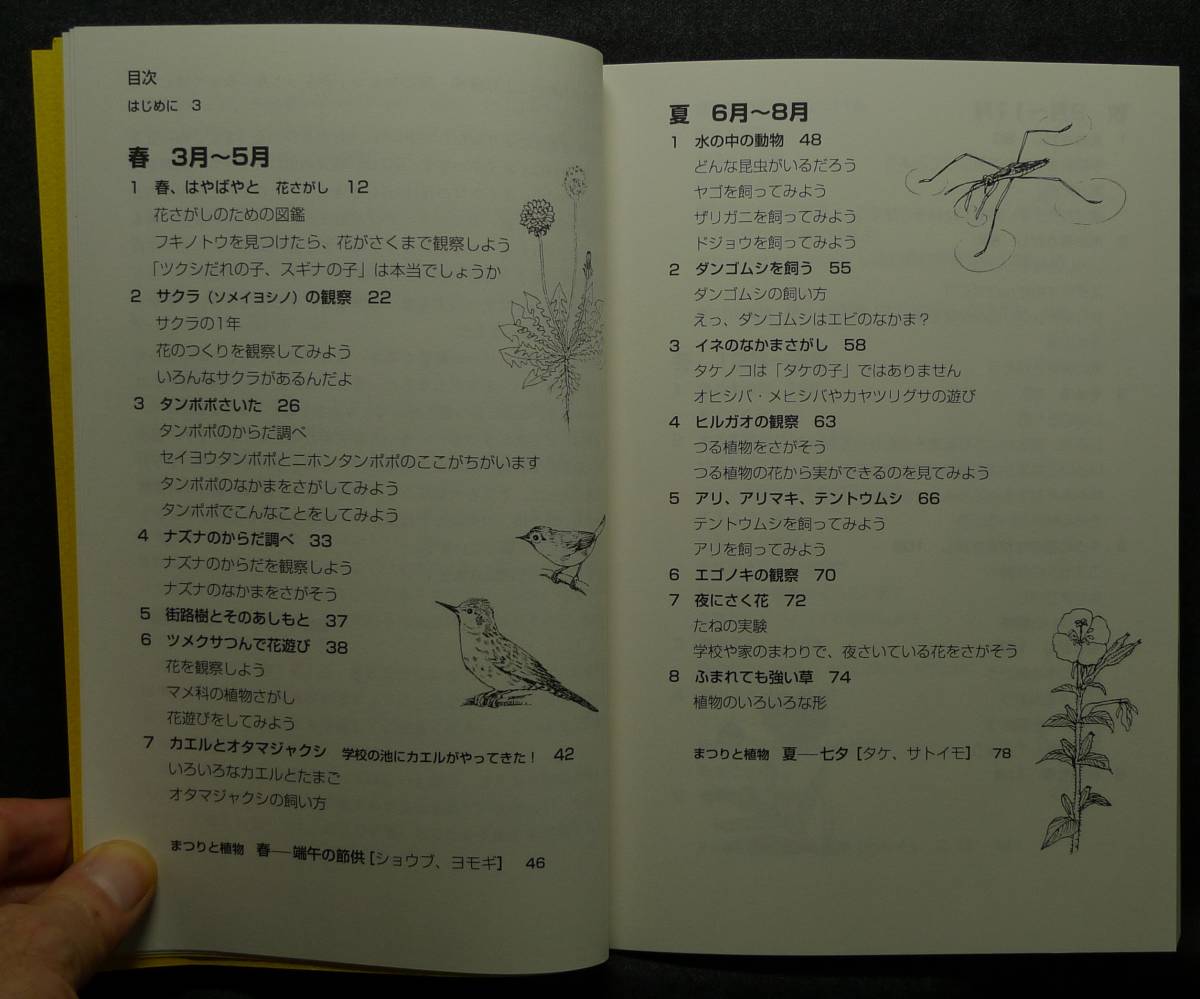 目次
はじめに 3
春 3月〜5月
1 春、はやばやと 花さがし 12
花さがしのための図鑑
フキノトウを見つけたら、花がさくまで観察しよう
「ツクシだれの子、スギナの子」は本当でしょうか
2 サクラ（ソメイヨシノ）の観察 22
サクラの1年
花のつくりを観察してみよう
いろんなサクラがあるんだよ
3 タンポポさいた 26
タンポポのからだ調べ
セイヨウタンポポとニホンタンポポのここがちがいます
タンポポのなかまをさがしてみよう
タンポポでこんなことをしてみよう
4 ナズナのからだ調べ 33
ナズナのからだを観察しよう
ナズナのなかまをさがそう
5 街路樹とそのあしもと 37
6 ツメクサつんで花遊び 38
花を観察しよう
マメ科の植物さがし
花遊びをしてみよう
7 カエルとオタマジャクシ 学校の池にカエルがやってきた！ 42
いろいろなカエルとたまご
オタマジャクシの飼い方
まつりと植物 春──端午の節供［ショウブ、ヨモギ］ 46
夏 6月〜8月
1 水の中の動物 48
どんな昆虫がいるだろう
ヤゴを飼ってみよう
ザリガニを飼ってみよう
ドジョウを飼ってみよう
2 ダンゴムシを飼う 55
ダンゴムシの飼い方
えっ、ダンゴムシはエビのなかま？
3 イネのなかまさがし 58
タケノコは「タケの子」ではありません
オヒシバ・メヒシバやカヤツリグサの遊び
4 ヒルガオの観察 63
つる植物をさがそう
つる植物の花から実ができるのを見てみよう
5 アリ、アリマキ、テントウムシ 66
テントウムシを飼ってみよう
アリを飼ってみよう
6 エゴノキの観察 70
7 夜にさく花 72
たねの実験
学校や家のまわりで、夜さいている花をさがそう
8 ふまれても強い草 74
植物のいろいろな形
まつりと植物 夏──七夕［タケ、サトイモ］ 78